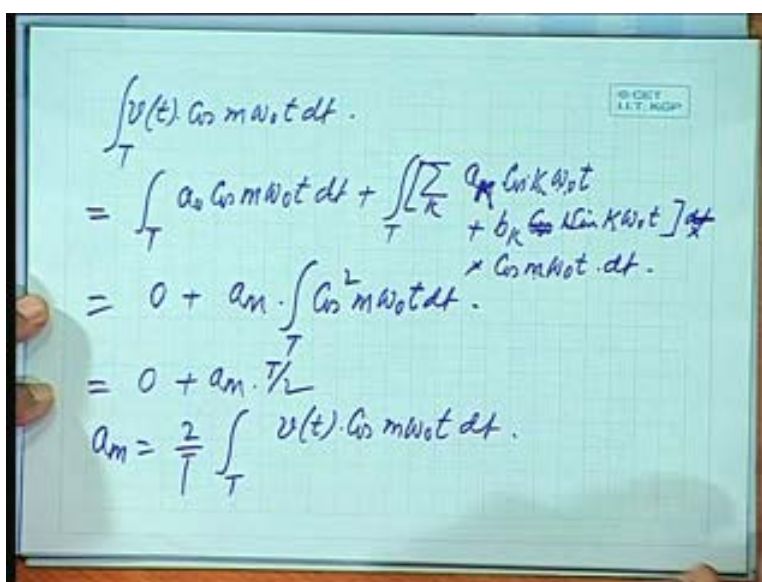 © CET
I.I.T. KGP
∫_T v(t). Cos mω₀t dt.
= ∫_T a₀ Cos mω₀t dt + ∫_T [∑_K a_K Cos Kω₀t
+ b_K Sin Kω₀t]
× Cos mω₀t . dt.
= 0 + a_m . ∫_T Cos² mω₀t dt.
= 0 + a_m . T/2
a_m = 2/T ∫_T v(t). Cos mω₀t dt.